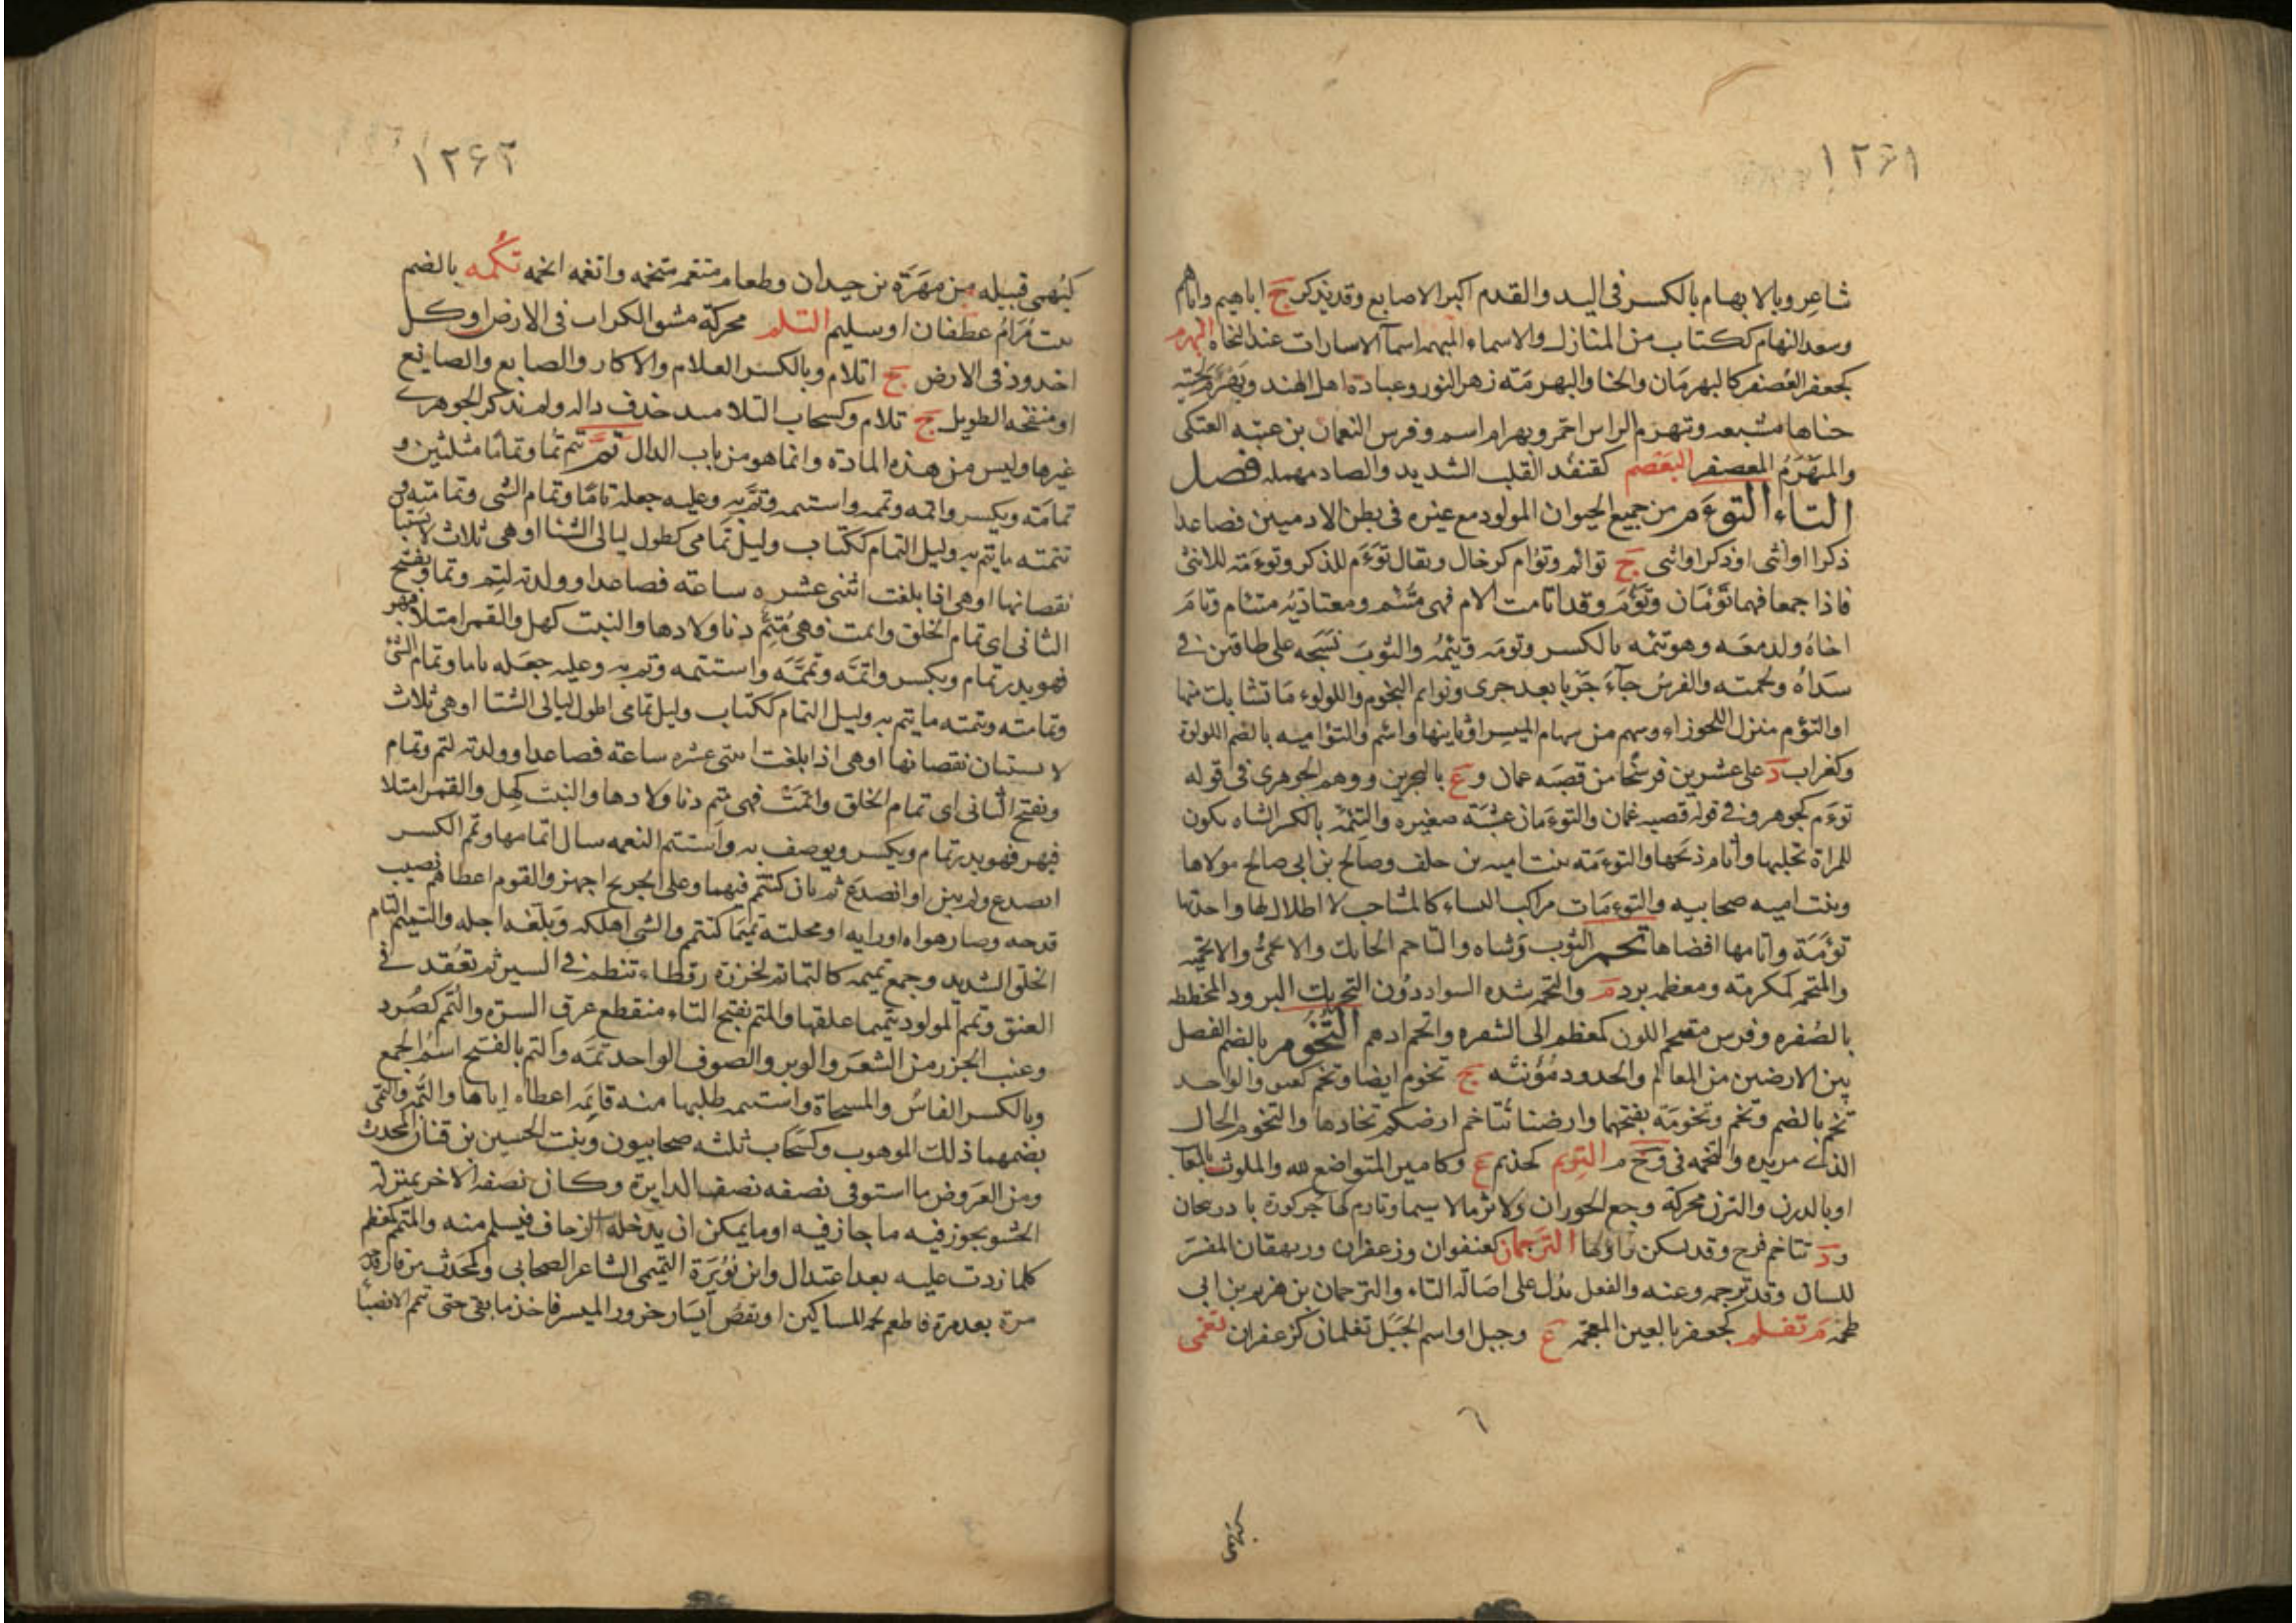 ١٢٦١
شاعر وبالابهام بالكسر فى اليد والقدم اكبر الاصابع وقد يذكر ج اباهيم واباهم
وسعد البهام ككتاب من المنازل والاسماء المبهمه اسمآ الاسارات عند النحاه البهرم
كجعفر العصفر كالبهرمان والحنا والبهرمة زهر النور وعبادة اهل الهند وبهرم لحيته
حناها مشبعه وتبهرم الراس احمر وبهرام اسم وفرس النعمان بن عتبه العتكى
والمبهرم المعصفر البعصم كقنفد القلب الشديد والصاد مهمله فصل
التاء التوءم من جميع الحيوان المولود مع غيره فى بطن الادميين فصاعدا
ذكرا اوانثى اوذكرا وانثى ج توائم وتؤام كرخال ويقال توءم للذكر وتوءمة للانثى
فاذا جمعا فهما توءمان وتؤم وقد اتامت الام فهى متئم ومعتادته متئام وتام
اخاه ولد معه وهو تئمه بالكسر وتومه وتئيمه والثوب نسجه على طاقين فى
سداه ولحمته والفرس جآء جريا بعد جرى وتوايم النجوم واللولوء ما تشابك منها
اوالتوم منزل للجوزاء وسهم من سهام الميسر اوثانيها واسم والتؤاميه بالضم اللولوة
وكغراب د على عشرين فرسخا من قصبه عمان و ع بالبحرين ووهم الجوهرى فى قوله
توءم كجوهر وفى قوله قصبه عمان والتوءمان عشبة صغيره والتئمه بالكسر الشاه يكون
للمراة تحلبها واتام ذبحها والتوءمة بنت اميه بن خلف وصالح بن ابى صالح مولاها
وبنت اميه صحابيه والتوءمات مراكب النساء كالمشاجب لا اظلال لها واحدتها
توءمة واتامها افضاها تحم الثوب وشاه والتاحم الحايك والاتحمى والاتحميه
والمتحم كمكرمة ومعظمه برد م والتحمه شده السواد دون التحريك البرود المخططه
بالصفره وفرس متحم اللون كمعظم الى الشقره واتحم ادهم التخوم بالضم الفصل
بين الارضين من المعالم والحدود مؤنثه ج تخوم ايضا وتخم كعنق والواحد
تخم بالضم وتخم وتخومة بفتحهما وارضنا تتاخم ارضكم تحادها والتخوم الحال
الذى تريده والتخمه فى وخ م التريم كحذيم ع وكامير المتواضع لله والملوث بالمعا
اوبالدرن والترن محركة وجع الحوران ولا ترما لا سيما وتارم كهاجر كورة باذربيجان
ود تتاخم فرج وقد تسكن راوها الترجمان كعنفوان وزعفران وريهقان المفسر
للسان وقد ترجمه وعنه والفعل يدل على اصالة التاء والترجمان بن هريم بن ابى
طخمه م تغلم كجعفر بالعين المعجمه ع وجبل او اسم الجبل تغلمان كزعفران تغمى
١٢٦٢
كبهمى قبيله من مهرة بن حيدان وطعام متغمه متخمه واتغمه اتخمه تكمه بالضم
بنت مر ام غطفان اوسليم التلم محركة مشق الكراب فى الارض اوكل
اخدود فى الارض ج اتلام وبالكسر الغلام والاكار والصايع والصايغ
اومنفخه الطويل ج تلام وكسحاب التلاميد حذف داله ولم يذكر الجوهرى
غيرها وليس من هذه المادة وانما هو من باب الدال تم يتم تما وتماما مثلثين و
تمامة ويكسر واتمه وتممه واستتمه وتم به وعليه جعله تاما وتمام الشى وتمامته و
تتمته ما يتم به وليل التمام ككتاب وليل تمامى كطول ليالى الشتا اوهى ثلاث لا يستبا
نقصانها اوهى اذا بلغت اثنى عشره ساعة فصاعدا وولدته لتم وتمام ويفتح
الثانى اى تمام الخلق واتمت فهى متم دنا ولادها والنبت كهل والقمر امتلا فبهر
فهو بدر تمام ويكسر واتمه وتممه واستتمه وتم به وعليه جعله تاما وتمام الشى
وتمامته وتتمته ما يتم به وليل التمام ككتاب وليل تمامى اطول ليالى الشتا اوهى ثلاث
لا يستبان نقصانها اوهى اذا بلغت اثنتى عشره ساعة فصاعدا وولدته لتم وتمام
ويفتح الثانى اى تمام الخلق واتمت فهى متم دنا ولادها والنبت كهل والقمر امتلا
فبهر فهو بدر تمام ويكسر ويوصف به واستتم النعمه سال اتمامها وتمم الكسر
انصدع ولم يبن او انصدع ثم بان كتتم فيهما وعلى الجريح اجهز والقوم اعطاهم نصيب
قدحه وصار هواه اورايه او محلته تميما كتتم والشى اهلكه وبلغه اجله والتميم التام
الخلق الشديد وجمع تميمه كالتمائم لخرزة رقطاء تنظم فى السير ثم تعقد فى
العنق وتمم المولود تتميما علقها والمتم بفتح التاء منقطع عرق السرة والتمم كصرد
وعنب الجزر من الشعر والوبر والصوف الواحد تمه والتم بالفتح اسم الجمع
وبالكسر الفاس والمسحاة واستتمه طلبها منه فاتمه اعطاه اياها والتمه والتمى
بضمهما ذلك الموهوب وكسحاب ثلثه صحابيون وبنت الحسين بن قنان المحدث
ومن العروض ما استوفى نصفه نصف الدايرة وكان نصفه الاخر بمنزلة
الحشو يجوز فيه ما جاز فيه اوما يمكن ان يدخله الزحاف فيسلم منه والمتمم كمعظم
كلما زدت عليه بعد اعتدال وابن نويرة التميمى الشاعر الصحابى وكمحدث من فاز قدحه
مرة بعد مرة فاطعم لحمه المساكين او نقص ايسار جزور الميسر فاخذ ما بقى حتى تتم الانصبا